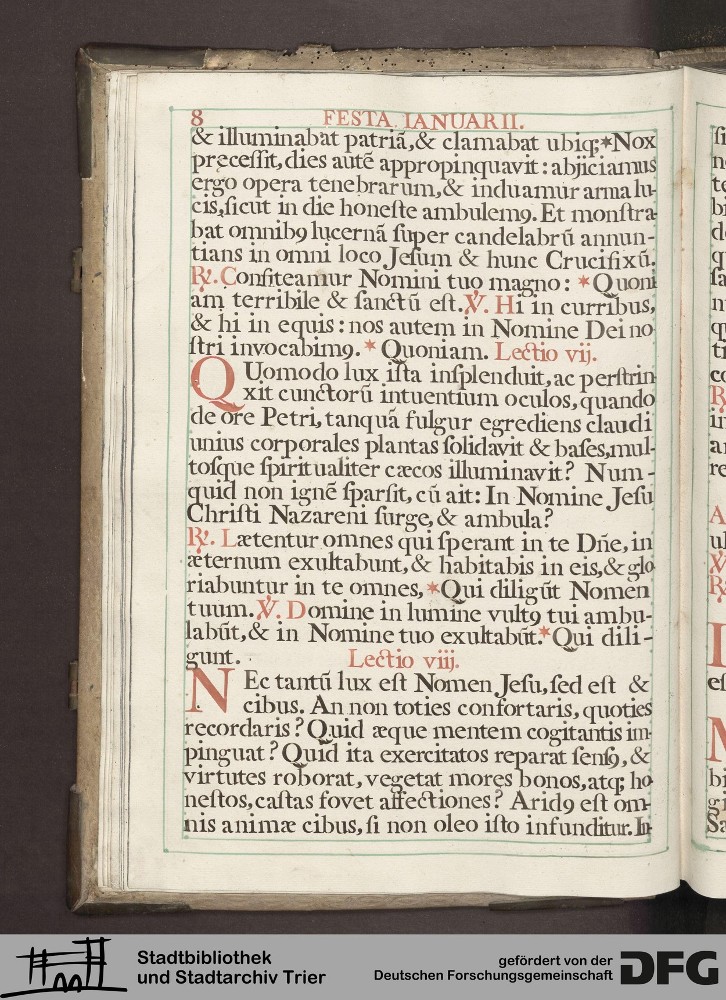 8 FESTA IANUARII.
& illuminabat patriã, & clamabat ubiq;*Nox
pręceſſit, dies autẽ appropinquavit: abjiciamus
ergo opera tenebrarum, & induamur arma lu-
cis, ſicut in die honeſte ambulemꝯ. Et monſtra-
bat omnibꝯ lucernã ſuper candelabrũ annun-
tians in omni loco Jeſum & hunc Crucifixũ.
℟. Confiteamur Nomini tuo magno: *Quoni
am terribile & ſanctũ eſt. ℣. Hi in curribus,
& hi in equis: nos autem in Nomine Dei no
ſtri invocabimꝯ. * Quoniam. Lectio vij.
QUomodo lux iſta inſplenduit, ac perſtrin-
xit cunctorũ intuentium oculos, quando
de ore Petri, tanquã fulgur egrediens claudi
unius corporales plantas ſolidavit & baſes, mul-
toſque ſpiritualiter cæcos illuminavit? Num-
quid non ignẽ ſparſit, cũ ait: In Nomine Jeſu
Chriſti Nazareni ſurge, & ambula?
℟. Lætentur omnes qui ſperant in te Dñe, in
æternum exultabunt, & habitabis in eis, & glo
riabuntur in te omnes, *Qui diligũt Nomen
tuum. ℣. Domine in lumine vultꝯ tui ambu-
labũt, & in Nomine tuo exultabũt.*Qui dili-
gunt. Lectio viij.
NEc tantũ lux eſt Nomen Jeſu, ſed eſt &
cibus. An non toties confortaris, quoties
recordaris? Quid æque mentem cogitantis im-
pinguat? Quid ita exercitatos reparat ſenſꝯ, &
virtutes roborat, vegetat mores bonos, atq; ho
neſtos, caſtas fovet affectiones? Aridꝯ eſt om-
nis animæ cibus, ſi non oleo iſto infunditur. In-
Stadtbibliothek
und Stadtarchiv Trier
gefördert von der
Deutschen Forschungsgemeinschaft
DFG